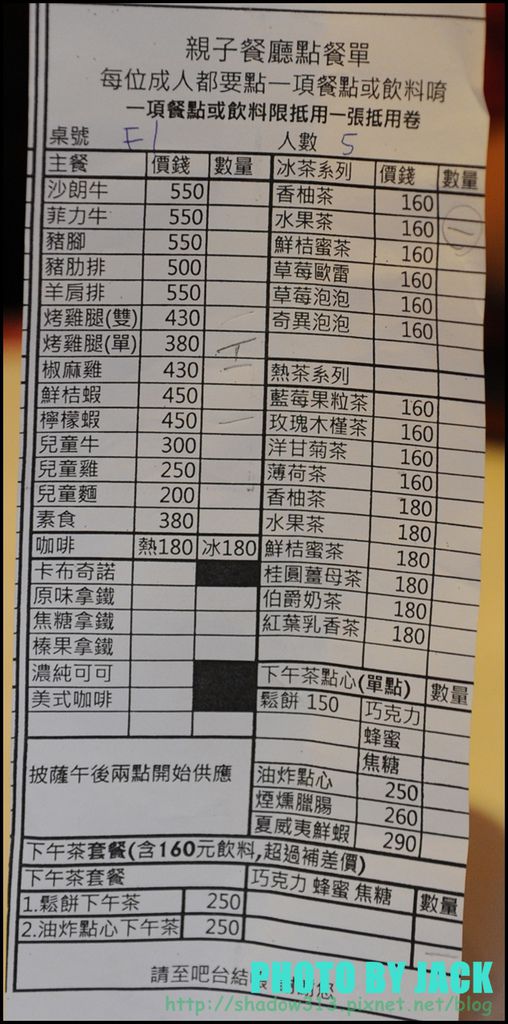 親子餐廳點餐單
每位成人都要點一項餐點或飲料唷
一項餐點或飲料限抵用一張抵用卷
桌號 F1 人數 5
主餐 價錢 數量
沙朗牛 550
菲力牛 550
豬腳 550
豬肋排 500
羊肩排 550
烤雞腿(雙) 430
烤雞腿(單) 380
椒麻雞 430
鮮桔蝦 450
檸檬蝦 450
兒童牛 300
兒童雞 250
兒童麵 200
素食 380
咖啡 熱180 冰180
卡布奇諾
原味拿鐵
焦糖拿鐵
榛果拿鐵
濃純可可
美式咖啡
披薩午後兩點開始供應
冰茶系列 價錢 數量
香柚茶 160
水果茶 160 一
鮮桔蜜茶 160
草莓歐雷 160
草莓泡泡 160
奇異泡泡 160
熱茶系列
藍莓果粒茶 160
玫瑰木槿茶 160
洋甘菊茶 160
薄荷茶 160
香柚茶 180
水果茶 180
鮮桔蜜茶 180
桂圓薑母茶 180
伯爵奶茶 180
紅葉乳香茶 180
下午茶點心(單點) 數量
鬆餅 150 巧克力
蜂蜜
焦糖
油炸點心 250
煙燻臘腸 260
夏威夷鮮蝦 290
下午茶套餐(含160元飲料,超過補差價)
下午茶套餐 巧克力 蜂蜜 焦糖 數量
1.鬆餅下午茶 250
2.油炸點心下午茶 250
請至吧台結
PHOTO BY JACK
http://shadow313.pixnet.net/blog